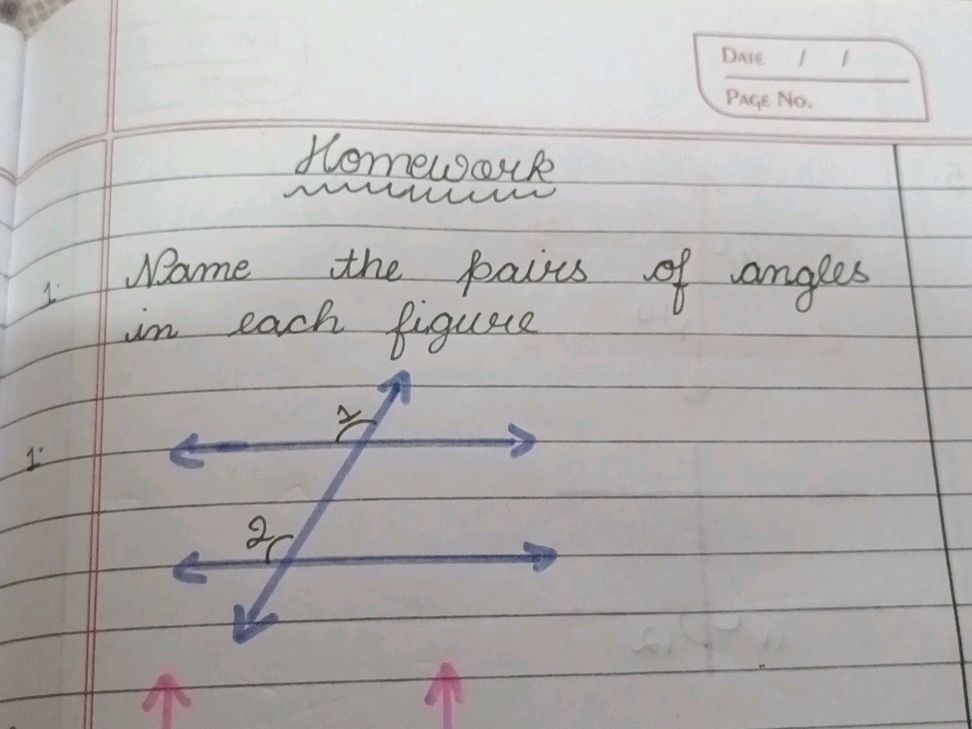 DATE / /
PAGE NO.
Homework
1. Name the pairs of angles
in each figure
1.
1
2